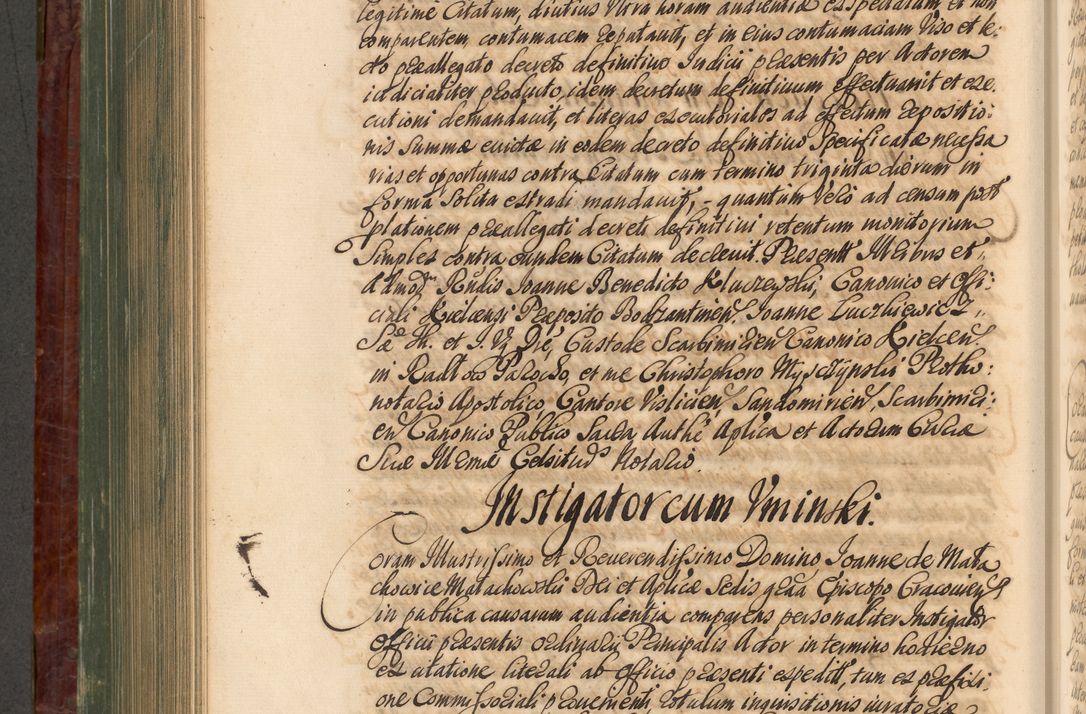 legitime Citatum, diutius Ultra horam audientiæ exspectatum et non
comparentem, contumacem reputavit, et in eius contumaciam Viso et le:
cto præallegato decreto definitivo Iudicii præsentis per Actorem
iudicialiter producto, idem decretum definitivum effectuavit et exe:
cutioni demandavit, et literas executoriales ad effectum reposítio:
nis Summæ evictæ in eodem decreto definitivo Specificatæ necessa
rias et opportunas contra Citatum cum termino triginta dierum in
forma Solita extradi mandavit, - quantum Vero ad censum post
plationem præallegati decreti definitivi retentum monitorium
Simplex contra eundem Citatum decrevit. Præsentt Illribus et
Admodm Rndis Joanne Benedicto Kluczewski, Canonico et Offi:
ciali Kielcensi Præposito Bodzantinen, Joanne Luczkiewicz
Sæ Th. et I. U. Dre, Custode Scarbimirien Canonico Kielcen
in Radłoto Parocho, et me Christophoro Myszczynski Protho:
notario Apostolico, Cantore Vislicien, Sandomirien, Scarbimiri:
en Canonico Publico Sacra Authe Aplica et Actorum Curiæ
Suæ Illmæ Celsitudis Notario.
Instigator cum Uminski.
Coram Illustrissimo et Reverendissimo Domino Joanne de Mała
chowice Małachowski Dei et Aplicæ Sedis græa Episcopo Cracovien
in publica causarum audientia comparens personaliter Instigator
Officii præsentis ordinarii Principalis Actor in termino hodierno
ex citatione literali ab officio præsenti expedit, tum ex præfixi:
one Commissoriali provenienti, rotulum inquisitionis iuratoriæ